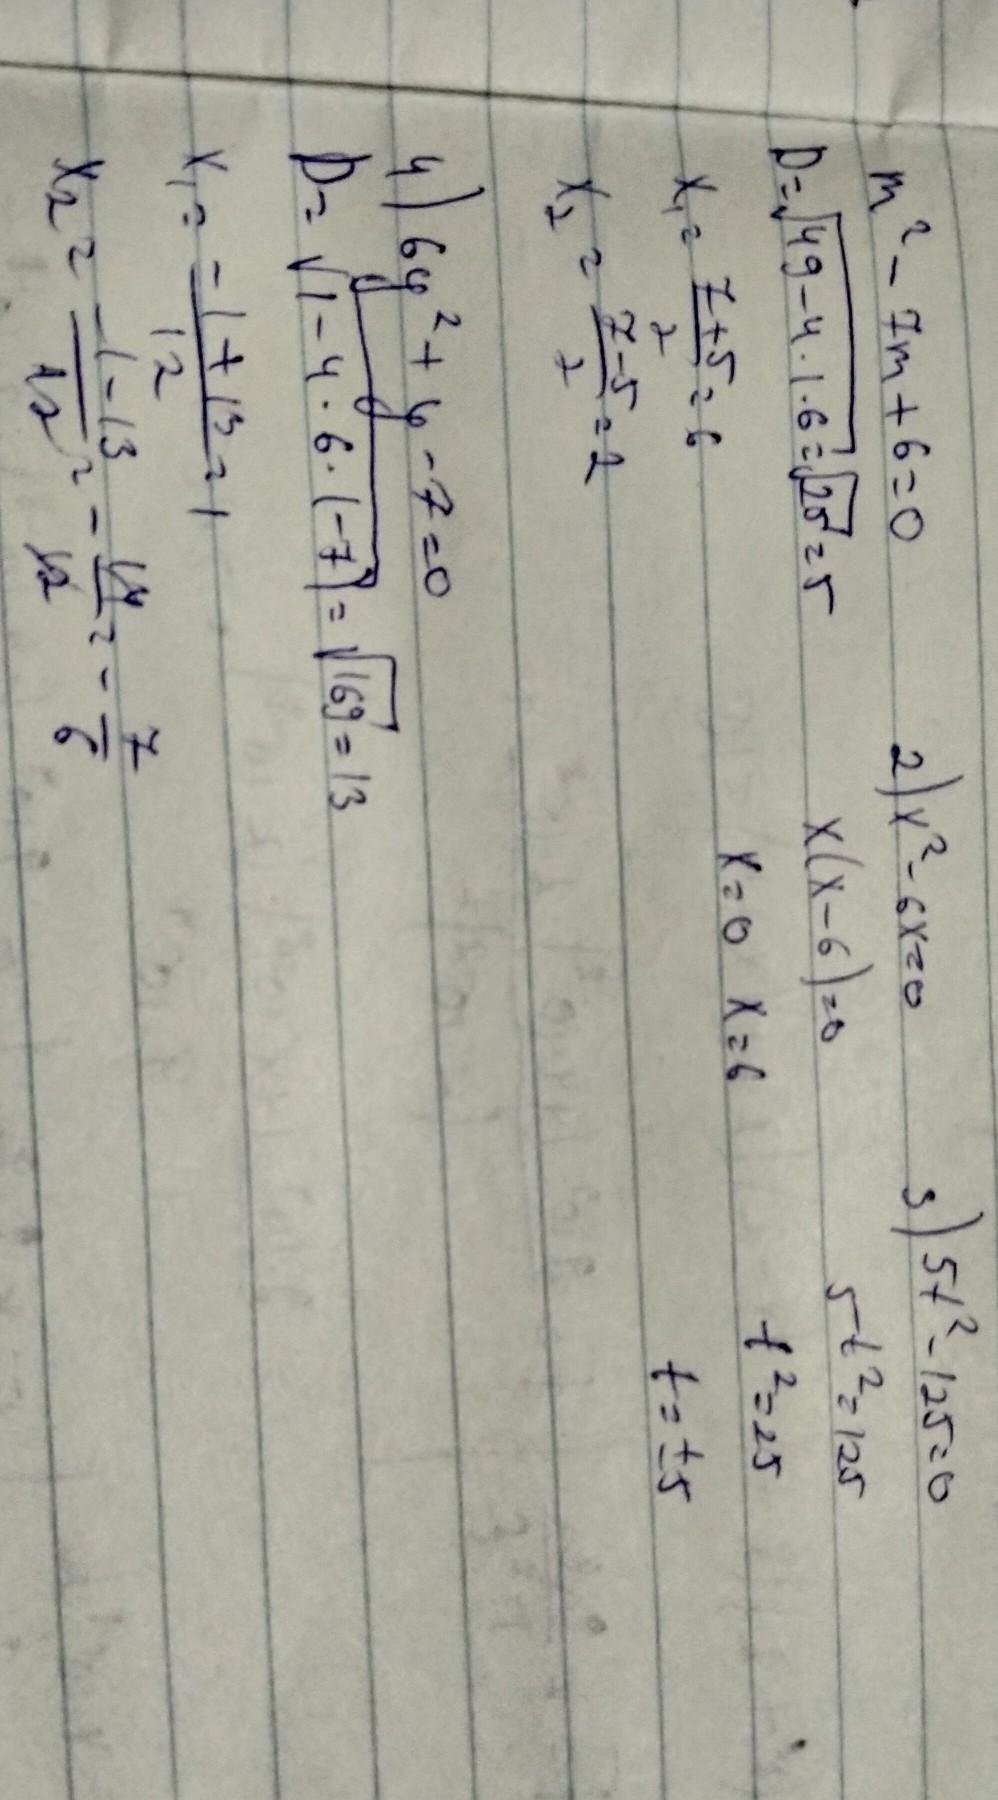 m² - 7m + 6 = 0
D = √49 - 4 · 1 · 6 = √25 = 5
x₁ = (7+5)/2 = 6
x₂ = (7-5)/2 = 2
2) x² - 6x = 0
x(x - 6) = 0
x = 0 x = 6
3) 5t² - 125 = 0
5t² = 125
t² = 25
t = ±5
4) 6y² + y - 7 = 0
D = √1 - 4 · 6 · (-7) = √169 = 13
x₁ = (-1 + 13)/12 = 1
x₂ = (-1 - 13)/12 = -14/12 = -7/6